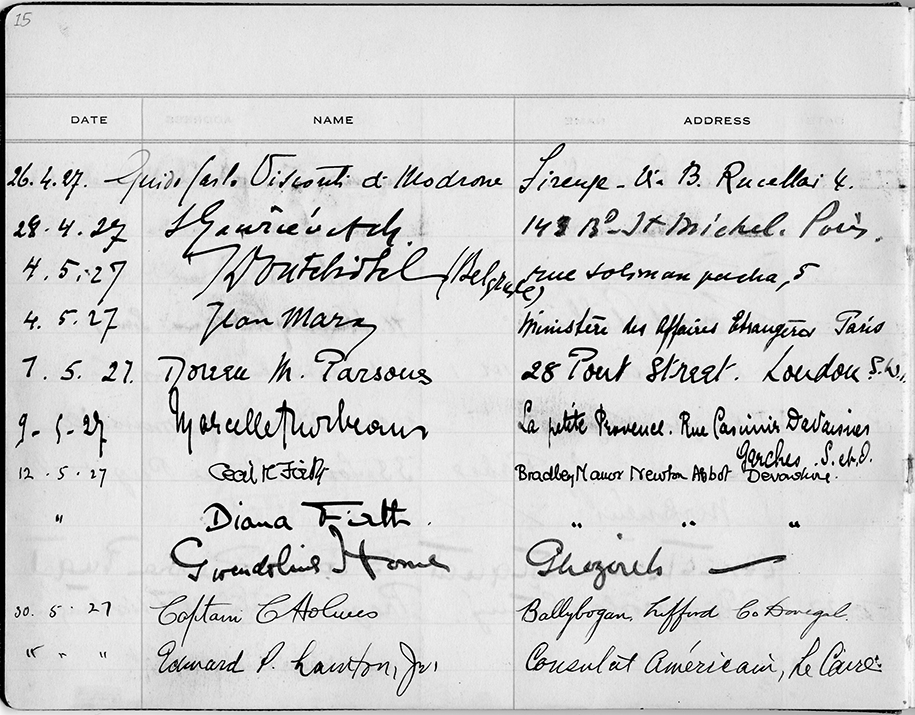 15
DATE NAME ADDRESS
26.4.27. Guido Carlo Visconti di Modrone Firenze - V. B. Rucellai 4.
28.4.27 Bd St Michel. Paris.
4.5.27 (Belgrade) rue soliman pacha, 5
4.5.27 Jean Marx Ministère des Affaires Etrangères Paris
7.5.27. Doreen M. Parsons 28 Pont Street. London S.W.
9-5-27 Marcelle La petite Provence. Rue Casimir Davaisnes
Garches. S.et.O.
12.5.27 Cecil M Firth Bradley Manor Newton Abbot Devonshire.
" Diana Firth. " " "
Gwendoline Home Ghezireh
30.5.27 Captain C Holmes Ballybogan, Lifford Co Donegal.
" " " Edward P. Lawton, Jr. Consulat Américain, Le Caire.